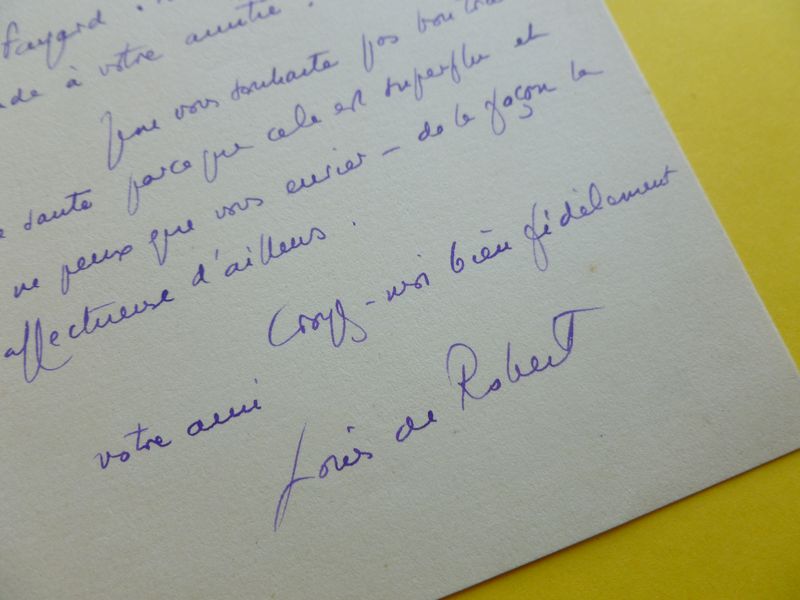 Fayard.
à votre amitié.
Je ne vous souhaite pas bon
santé parce que cela est superflu et
ne peux que vous envier – de la façon la
affectueuse d'ailleurs.
Croyez-moi bien fidèlement
votre ami
Louis de Robert